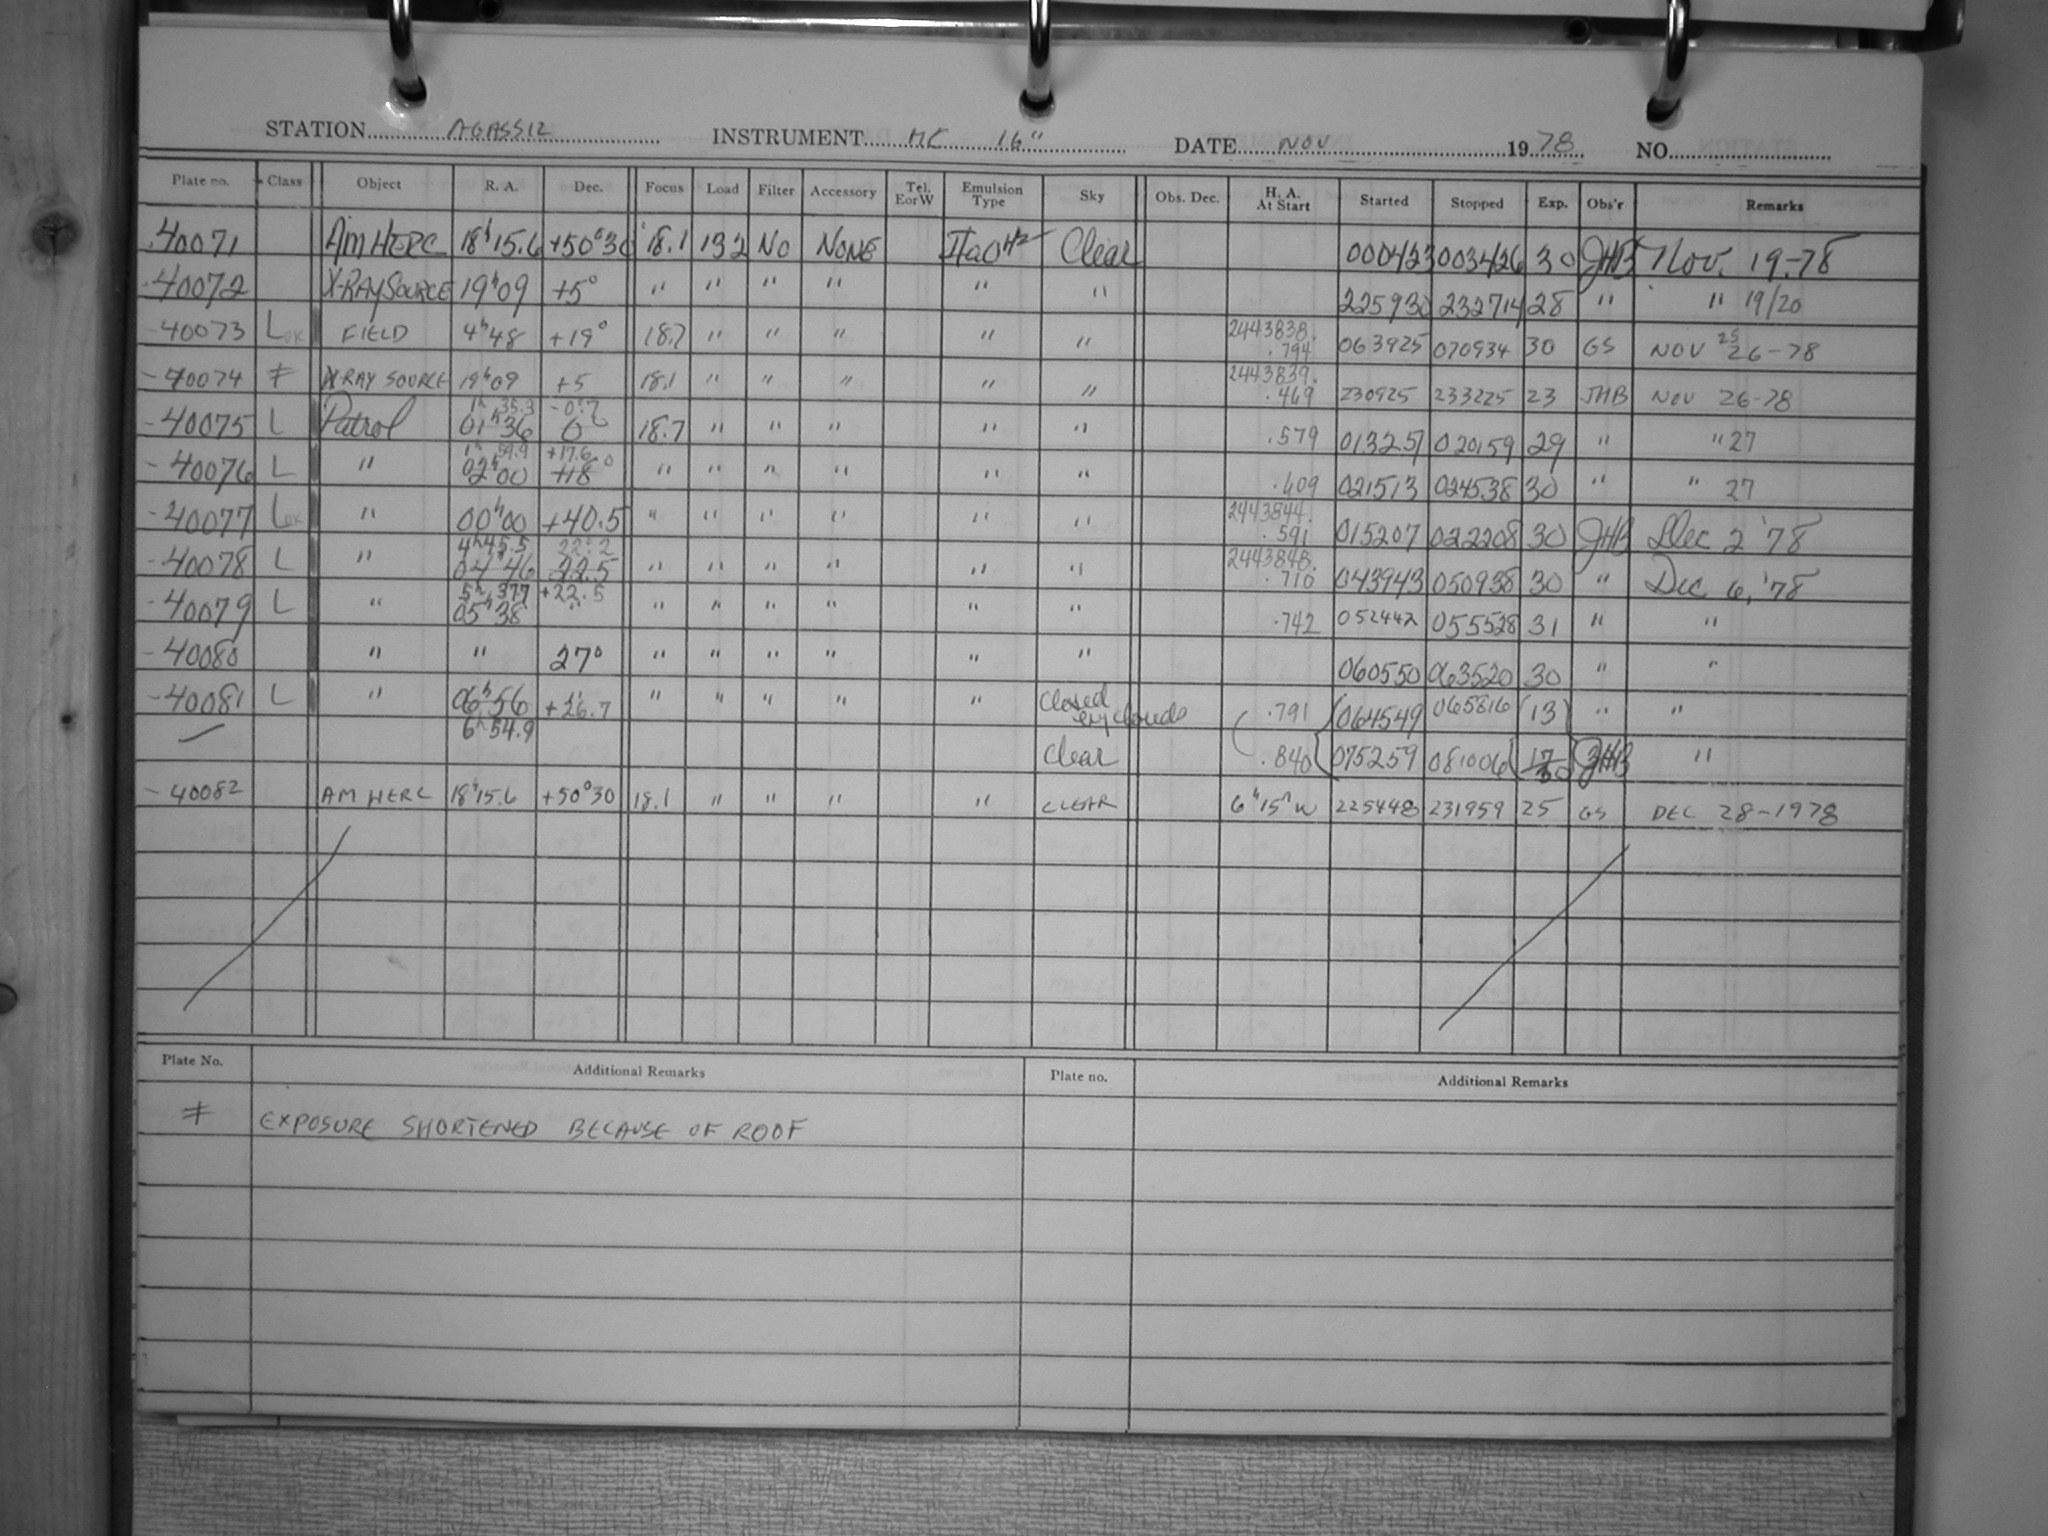 STATION AGASSIZ INSTRUMENT MC 16" DATE NOV 1978 NO.
Plate no. Class Object R. A. Dec. Focus Load Filter Accessory Tel. E or W Emulsion Type Sky Obs. Dec. H. A. At Start Started Stopped Exp. Obs'r Remarks
40071 AM HERC 18ʰ15.6 +50°30 18.1 132 NO NONE IIaO Clear 000423 003426 30 JHB Nov. 19-78
40072 X-RAY SOURCE 19ʰ09 +5° " " " " " " 225930 232714 28 " " 19/20
40073 L OK FIELD 4ʰ48 +19° 18.7 " " " " " 2443838. .794 063925 070934 30 GS NOV 25 26-78
40074 ≠ X-RAY SOURCE 19ʰ09 +5 18.1 " " " " " 2443839. .469 230925 233225 23 JHB NOV 26-78
1ʰ 35.3 -0.7
40075 L Patrol 01ʰ36 0° 18.7 " " " " " .579 013257 020159 29 " " 27
1ʰ 59.9 +17.6
40076 L " 02ʰ00 +18° " " " " " " .609 021513 024538 30 " " 27
40077 L OK " 00ʰ00 +40.5 " " " " " " 2443844. .591 015207 022208 30 JHB Dec 2 '78
4ʰ45.5 22.2
40078 L " 04ʰ46 22.5 " " " " " " 2443848. .710 043943 050938 30 " Dec 6, '78
5ʰ 37.7 +22.5
40079 L " 05ʰ38 " " " " " " " .742 052442 055528 31 " "
40080 " " 27° " " " " " " 060550 063520 30 " "
40081 L " 06ʰ56 +26.7 " " " " " Closed clouds .791 064549 065816 13 " "
6ʰ54.9
Clear .840 075259 081006 17 30 JHB "
40082 AM HERC 18ʰ15.6 +50°30 18.1 " " " " CLEAR 6ʰ15ᵐW 225448 231959 25 GS DEC 28-1978
Plate No. Additional Remarks Plate no. Additional Remarks
≠ EXPOSURE SHORTENED BECAUSE OF ROOF